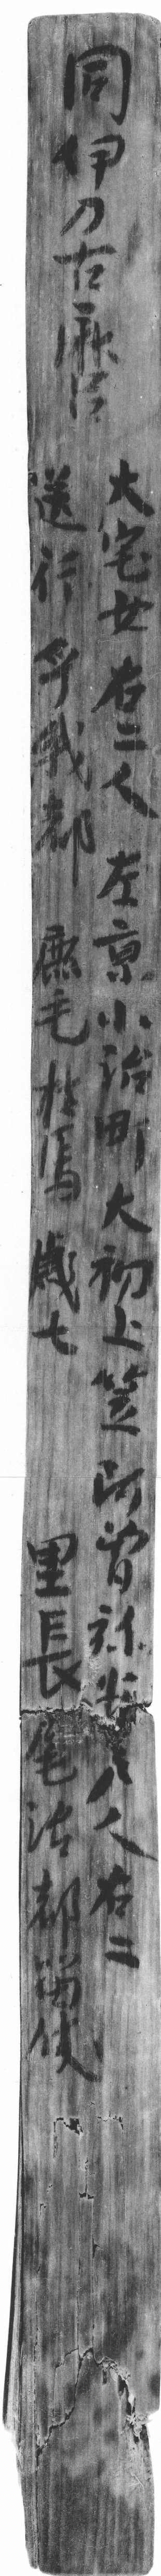 同伊刀古麻呂
大宅女右二人左京小治町大初上笠阿曽弥安戸人右二
送行乎我都 鹿毛牡馬歳七 里長尾治都留伎